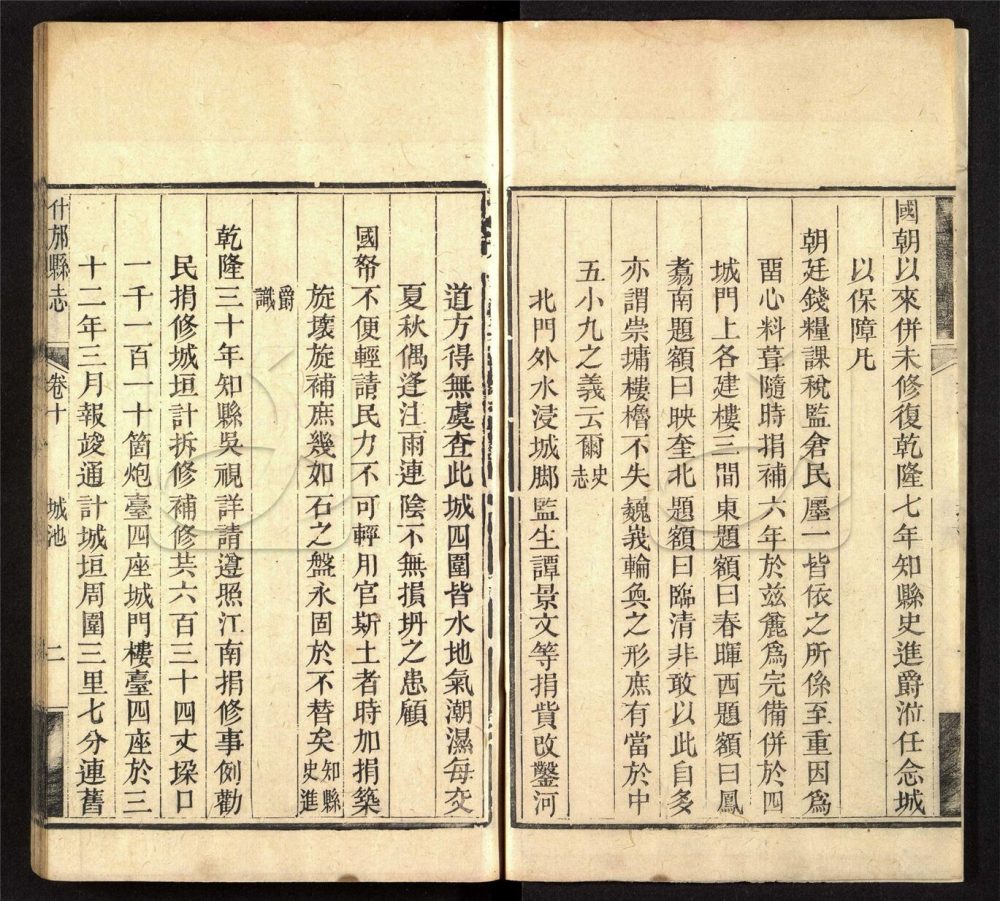 國朝以來併未修復乾隆七年知縣史進爵涖任念城
以保障凡
朝廷錢糧課稅監倉民廛一皆依之所係至重因爲
畱心料葺隨時捐補六年於兹麄爲完備併於四
城門上各建樓三間東題額曰春暉西題額曰鳳
翥南題額曰映奎北題額曰臨清非敢以此自多
亦謂崇墉樓櫓不失巍峩輪奐之形庶有當於中
五小九之義云爾史志
北門外水浸城脚監生譚景文等捐貲改鑿河
道方得無虞查此城四圍皆水地氣潮濕每交
夏秋偶逢注雨連陰不無損坍之患顧
國帑不便輕請民力不可輕用官斯土者時加捐築
旋壞旋補庶幾如石之盤永固於不替矣知縣史進
爵識
乾隆三十年知縣吳視詳請遵照江南捐修事例勸
民捐修城垣計拆修補修共六百三十四丈垜口
一千一百一十箇炮臺四座城門樓臺四座於三
十二年三月報竣通計城垣周圍三里七分連舊
什邡縣志 卷十 城池 二